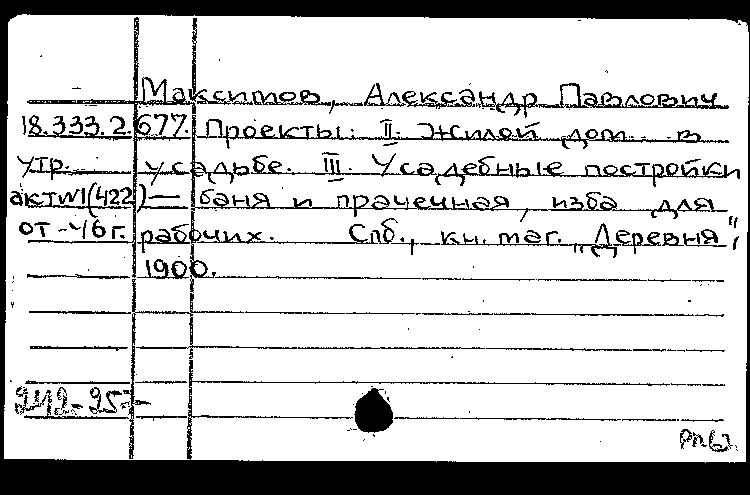 Максимов, Александр Павлович
18.333.2.677. Проекты: II. Жилой дом в
утр. усадьбе. III. Усадебные постройки
акт№1(422) — баня и прачечная, изба для
от -46г. рабочих. Спб., кн. маг. „Деревня",
1900.
242-25